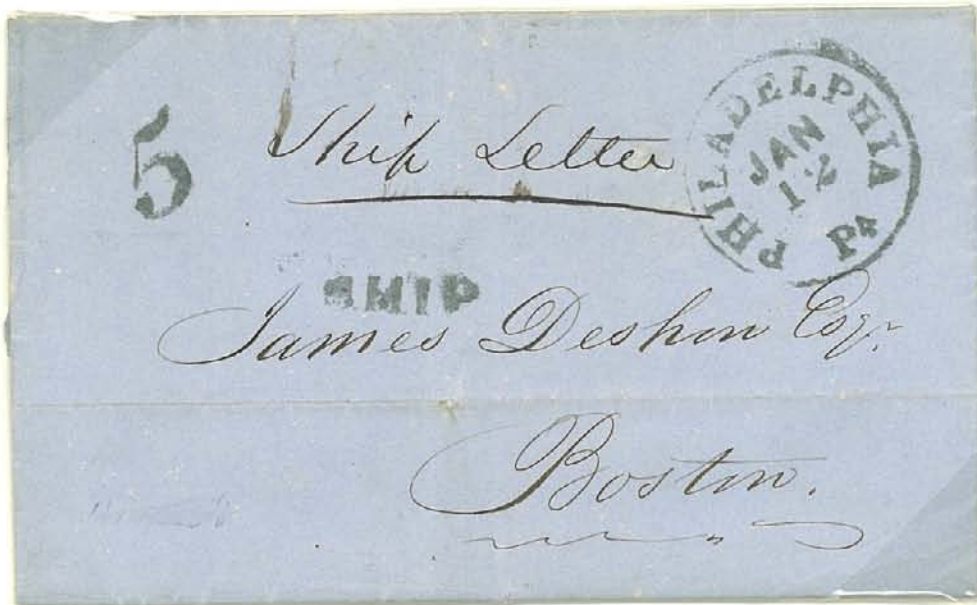 5
Ship Letter
PHILADELPHIA Pa
JAN
12
SHIP
James Deshon Esqr.
Boston.